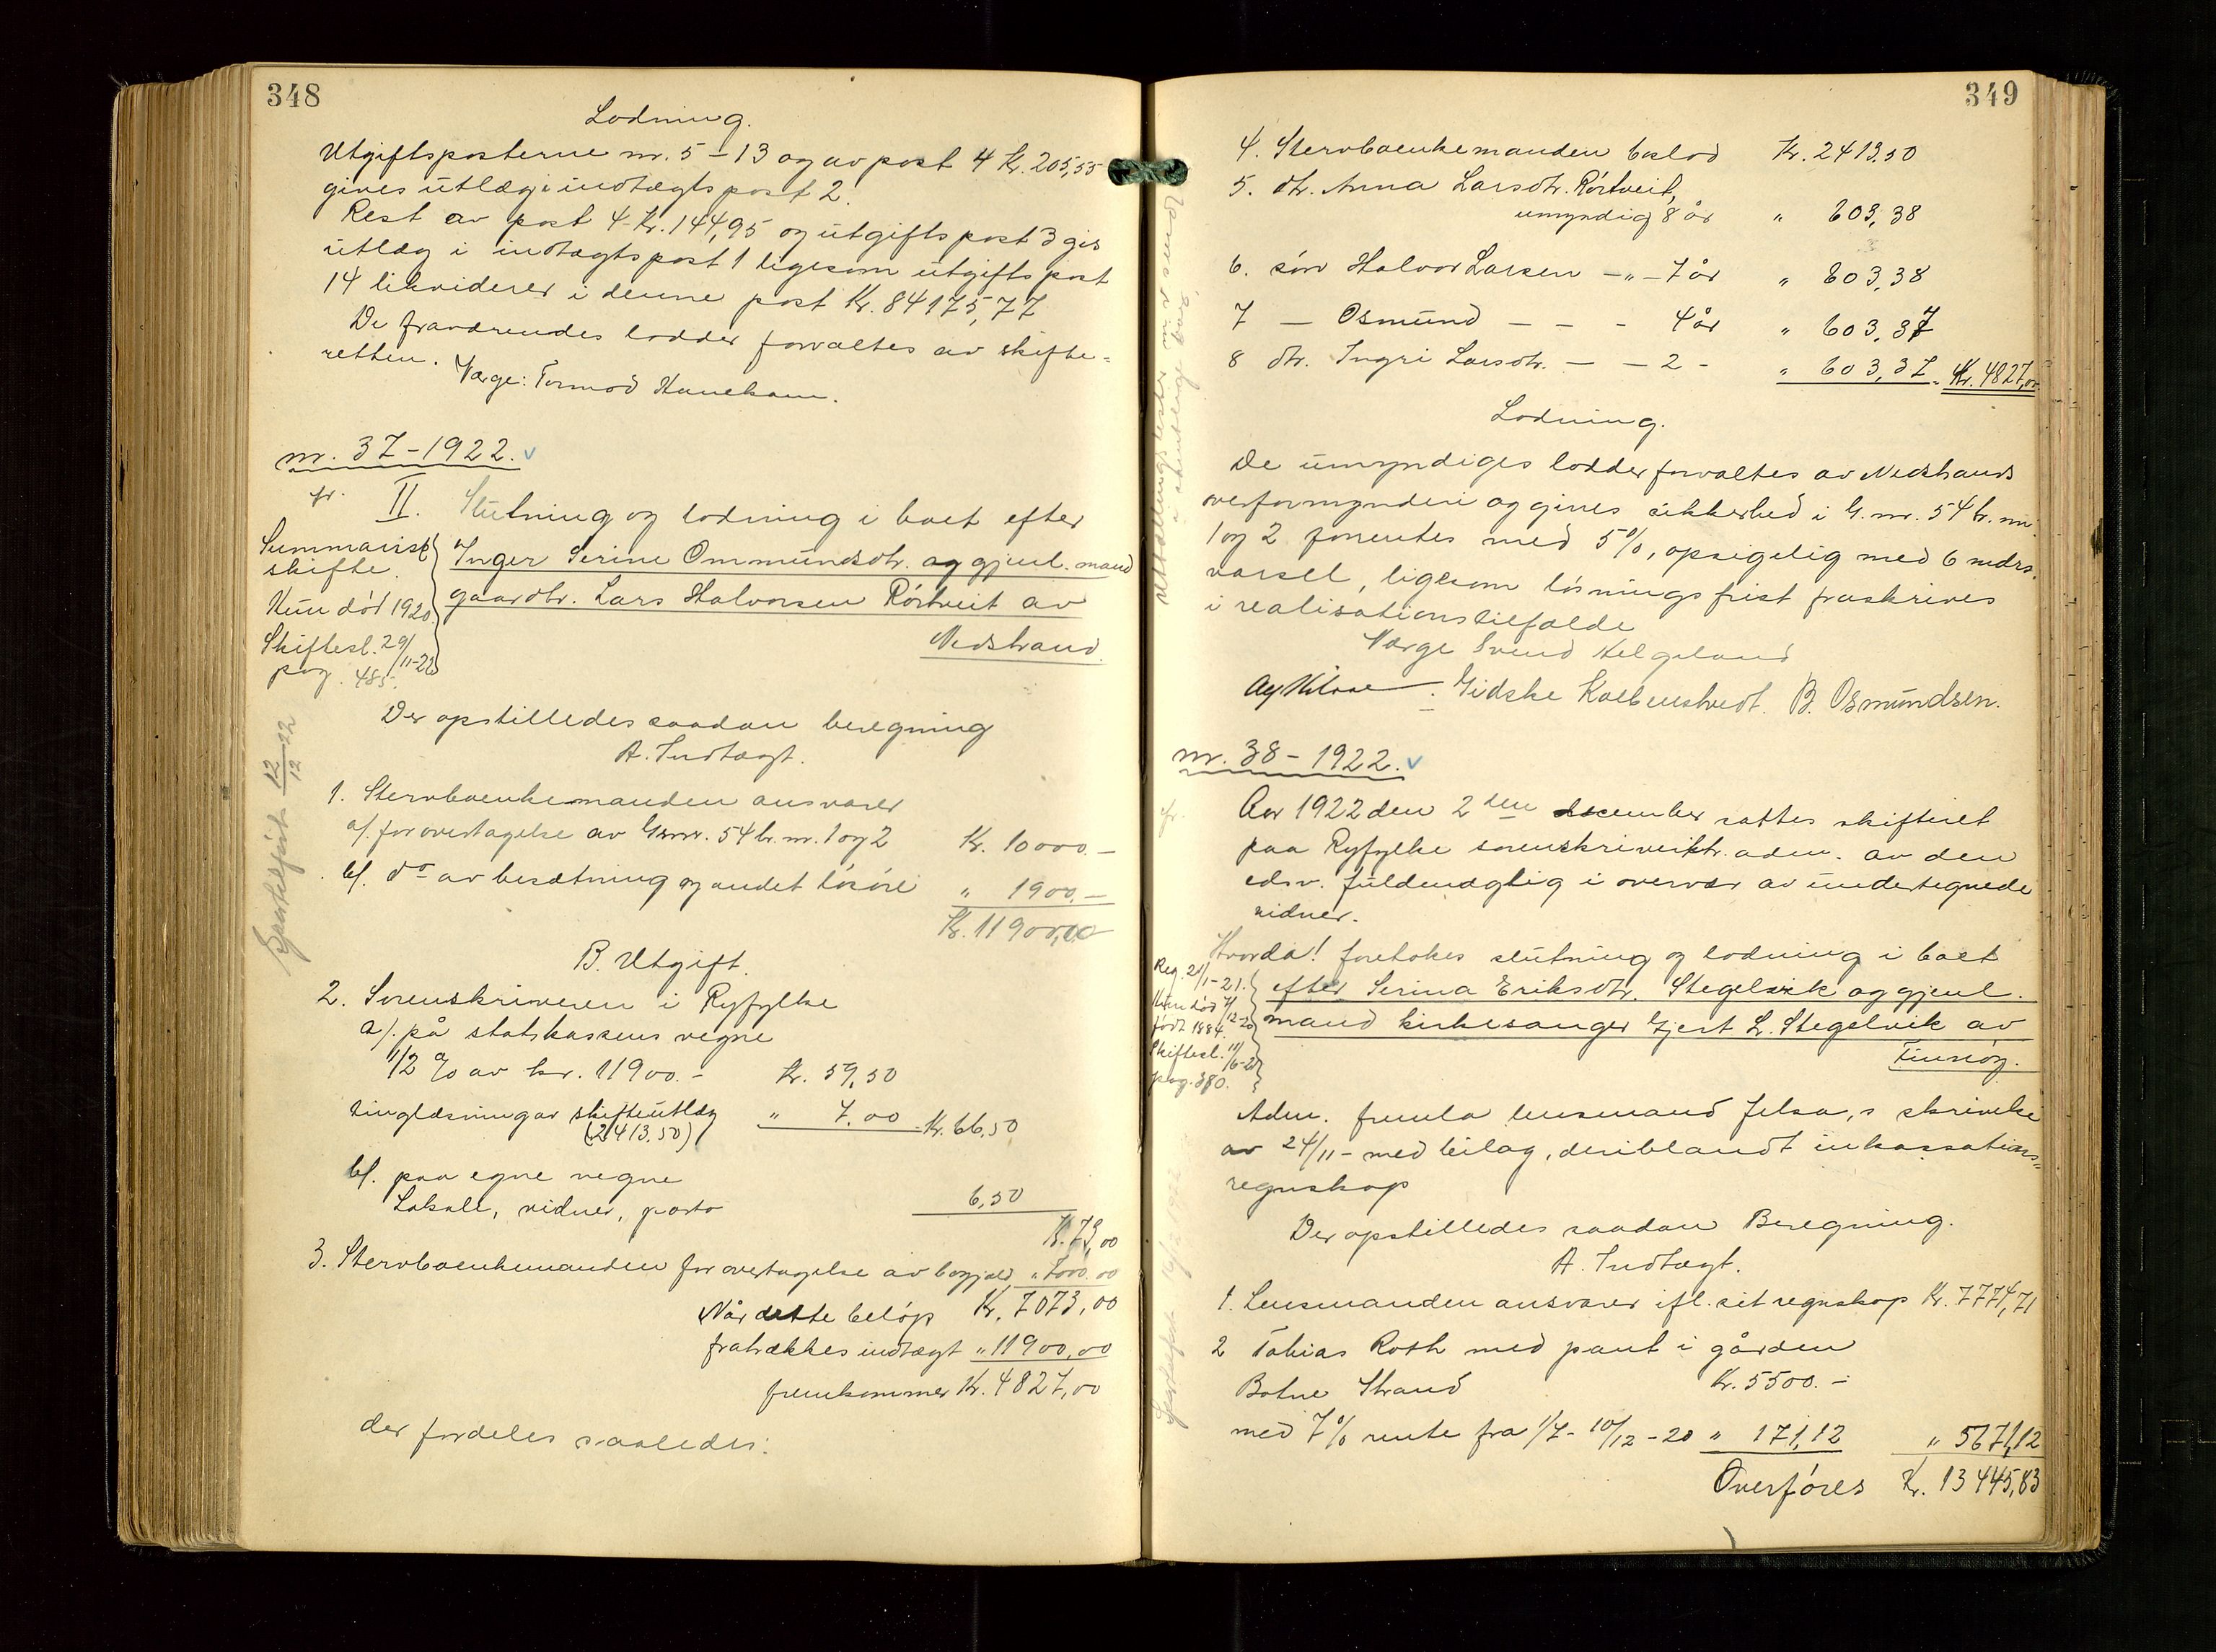 348
Lodning.
Utgiftsposterne nr. 5-13 og av post 4 Kr. 205,55
gives utlæg i indtægtspost 2.
Rest av post 4 Kr. 144,95 og utgiftspost 3 gis
utlæg i indtægtspost 1 ligesom utgiftspost
14 likviderer i denne post Kr. 84175,77
De fraværendes lodder forvaltes av skifte=
retten. Værge: Tormod Haneham.
nr. 37-1922.
fr. II. Slutning og lodning i boet efter
Summarisk
skifte.
Hun död 1920.
Skiftesl. 29/11-22
pag. 485.
Inger Serine Ommundsdtr. og gjenl. mand
gaardbr. Lars Halvorsen Rörtveit av
Nedstrand.
Der opstilledes saadan beregning
A. Indtægt.
1. Stervboenkemanden ansvarer
a/. for overtagelse av Grnr. 54 br. nr. 1 og 2 Kr. 10000.-
b/. do av besætning og andet lösöre " 1900.-
Kr. 11900,00
B. Utgift.
2. Sorenskriveren i Ryfylke
a/. på statskassens vegne
1/2 % av kr. 11900.- Kr. 59,50
tinglæsning av skifteutlæg " 7.00 Kr. 66,50
(2413.50)
b/. paa egne vegne
Lokale, vidner, porto 6,50
Kr. 73,00
3. Stervboenkemanden for overtagelse av bogjæld " 7000.00
Når dette belöp Kr. 7073,00
fratrækkes indtægt " 11900,00
fremkommer Kr. 4827,00
der fordeles saaledes:
12/12 22
349
4. Stervboenkemanden boslod Kr. 2413.50
5. dtr. Anna Larsdtr. Rörtveit,
umyndig 8 år " 603,38
6. sön Halvor Larsen -"- 7 år " 603,38
7 - Osmund - - - 4 år " 603,37
8 dtr. Ingri Larsdtr. - - 2 - " 603,37 Kr. 4827,00
Lodning.
De umyndiges lodder forvaltes av Nedstrands
overformynderi og gives sikkerhed i G. nr. 54 br. nr.
1 og 2 forrentes med 5%, opsigelig med 6 mdrs.
varsel, ligesom lösningsfrist fraskrives
i realisationstilfælde
Værge Svend Helgeland
Gidske Kolbenstvedt. B. Osmundsen.
nr. 38-1922.
Aar 1922 den 2den december sattes skifteret
paa Ryfylke sorenskriverktr. adm. av den
edsv. fuldmægtig i overvær av undertegnede
vidner.
Hvorda! foretokes slutning og lodning i boet
Reg. 21/1-21.
Hun död 7/12-20
född 1884.
Skiftesl. 11/6-21
pag. 380.
efter Serina Eriksdtr. Stegelvik og gjenl.
mand kirkesanger Gjert L. Stegelvik av
Finnöy.
Adm. fremla lensmand Jelsa,s skrivelse
av 24/11- med bilag, deriblandt inkassations=
regnskap
Der opstilledes saadan Beregning.
A. Indtægt.
1. Lensmanden ansvarer ifl. sit regnskap Kr. 7774,71
2 Tobias Roth med pant i gården
Botne Strand Kr. 5500.-
med 7% rente fra 1/7-10/12-20 " 171,12 " 5671,12
Överföres Kr. 13445,83